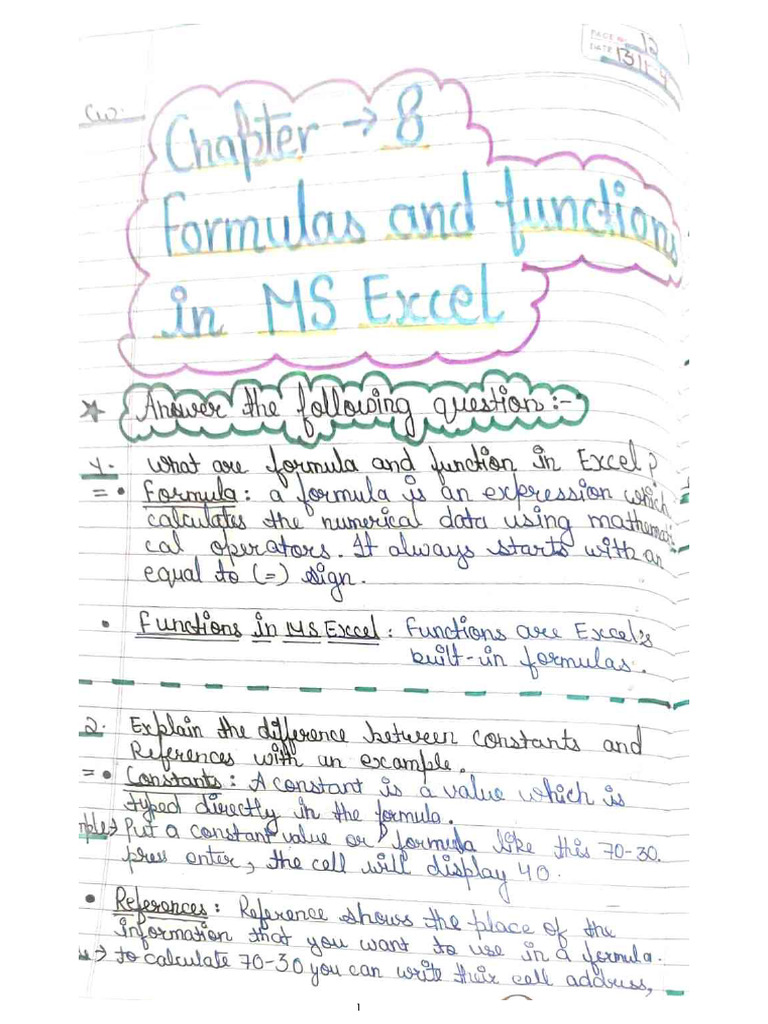 PAGE No. 12
DATE
C.W.
Chapter → 8
Formulas and functions
in MS Excel
Answer the following question:-
1. What are formula and function in Excel?
= • Formula: a formula is an expression which
calculates the numerical data using mathemati
cal operators. It always starts with an
equal to (=) sign.
• Functions in MS Excel: Functions are Excel's
built-in formulas.
2. Explain the difference between constants and
References with an example.
= • Constants: A constant is a value which is
typed directly in the formula.
mple→ Put a constant value or formula like this 70-30.
press enter, the cell will display 40.
• References: Reference shows the place of the
information that you want to use in a formula.
→ to calculate 70-30 you can write their cell address,
1